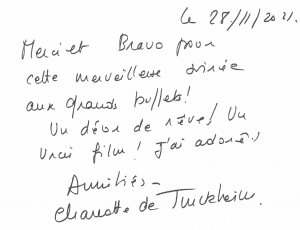 Le 28/11/2021.
Merci et Bravo pour
cette merveilleuse soirée
aux grands buffets!
Un décor de rêve! Un
vrai film! J'ai adoré
Amitiés -
Charlotte de Turckheim.